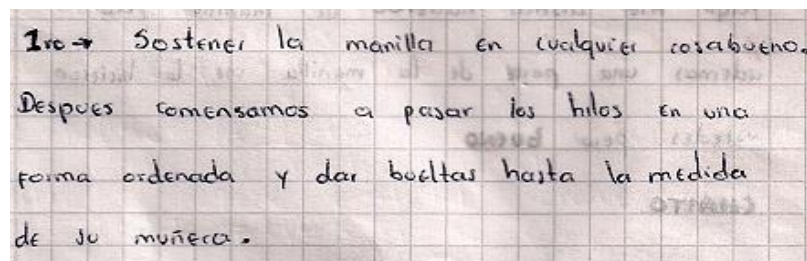 1ro → Sostener la manilla en cualquier cosabueno.
Despues comensamos a pasar los hilos en una
forma ordenada y dar bueltas hasta la medida
de su muñeca.